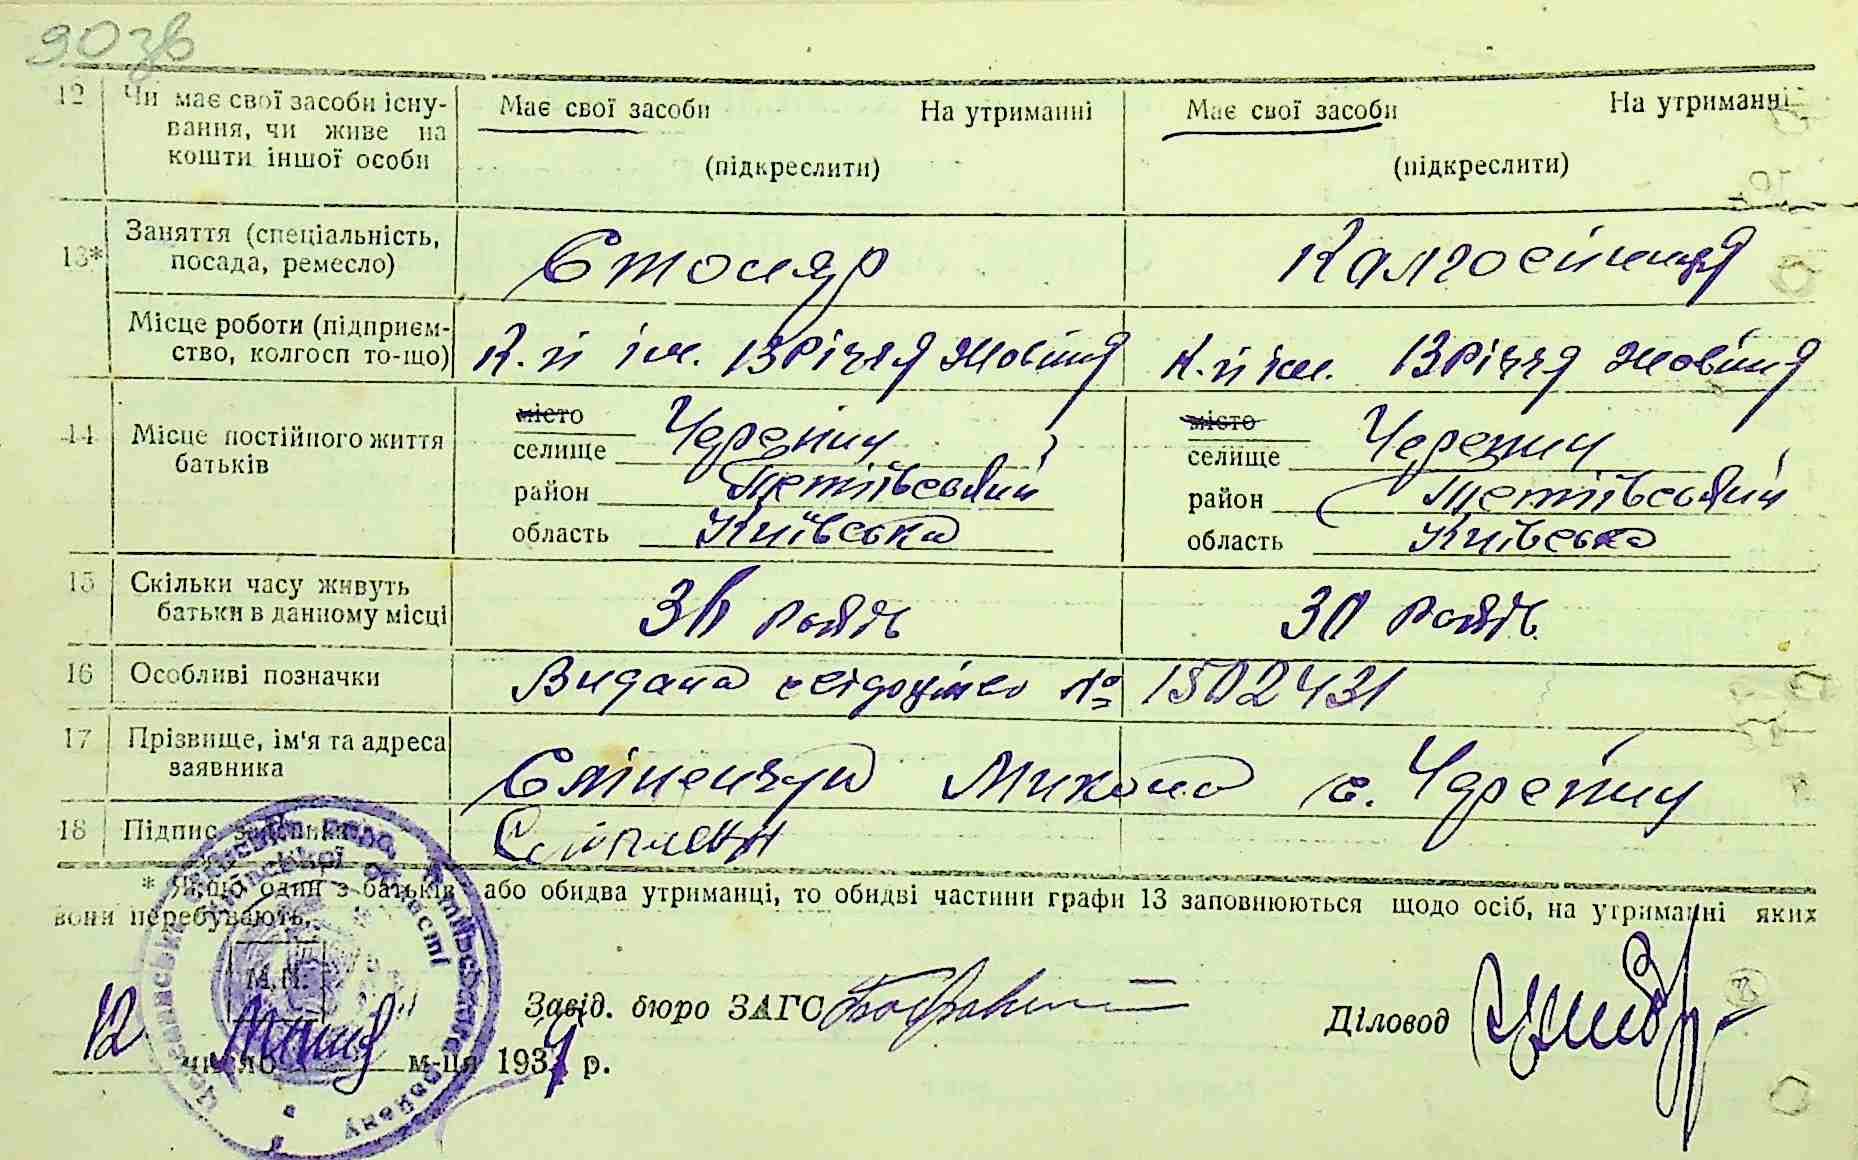 90зв
12 Чи має свої засоби існу- Має свої засоби На утриманні Має свої засоби На утриманні
вання, чи живе на
кошти іншої особи (підкреслити) (підкреслити)
13* Заняття (спеціальність, Столяр Колгоспниця
посада, ремесло)
Місце роботи (підприєм- К-п ім. 13 Річчя Жовтня К-п ім. 13 Річчя Жовтня
ство, колгосп то-що)
14 Місце постійного життя місто місто
батьків селище Черепин селище Черепин
район Тетіївський район Тетіївський
область Київська область Київська
15 Скільки часу живуть 36 років 30 років
батьки в данному місці
16 Особливі позначки Видано свідоцтво № 1502431
17 Прізвище, ім'я та адреса Микола с. Черепин
заявника
18 Підпис заявника
* Якщо один з батьків або обидва утриманці, то обидві частини графи 13 заповнюються щодо осіб, на утриманні яких
вони перебувають.
М.П.
Завід. бюро ЗАГС Діловод
12 число м-ця 1937 р.